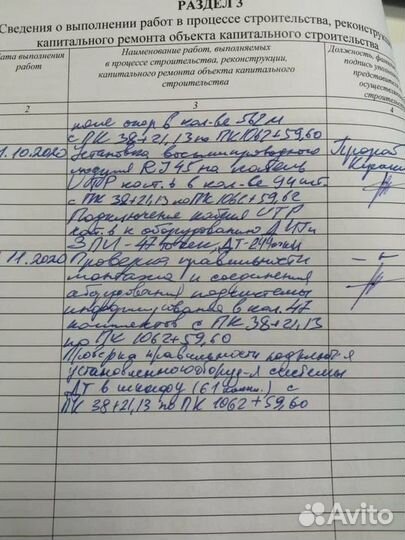 РАЗДЕЛ 3
Сведения о выполнении работ в процессе строительства, реконструк
капитального ремонта объекта капитального строительства
Дата выполнения работ
Наименование работ, выполняемых
в процессе строительства, реконструкции,
капитального ремонта объекта капитального
строительства
Должность, фамили
подпись уполном
представите
осуществля
строительс
2
3
4
поле опор в кол-ве 562 м
с ПК 38+21,13 по ПК1062+59,60
1.10.2020 Установка восьмипроводного Прораб
модуля RJ45 на кабель
UTP кат. 6 в кол-ве 94 шт.
с ПК 38+21,13 по ПК1062+59,62
Подключение кабеля UTP
кат. 6 к оборудованию ДИТ и
ЗПИ - 47 точек, ДТ-244 точки
11.2020 Проверка правильности - " -
монтажа и соединения
оборудования подсистемы
информирования в кол. 47
комплектов с ПК 38+21,13
по ПК 1062+59,60
Проверка правильности подключ-я
установленного оборуд-я системы
ДТ в шкафу (61 компл.) с
ПК 38+21,13 по ПК 1062+59,60
Avito